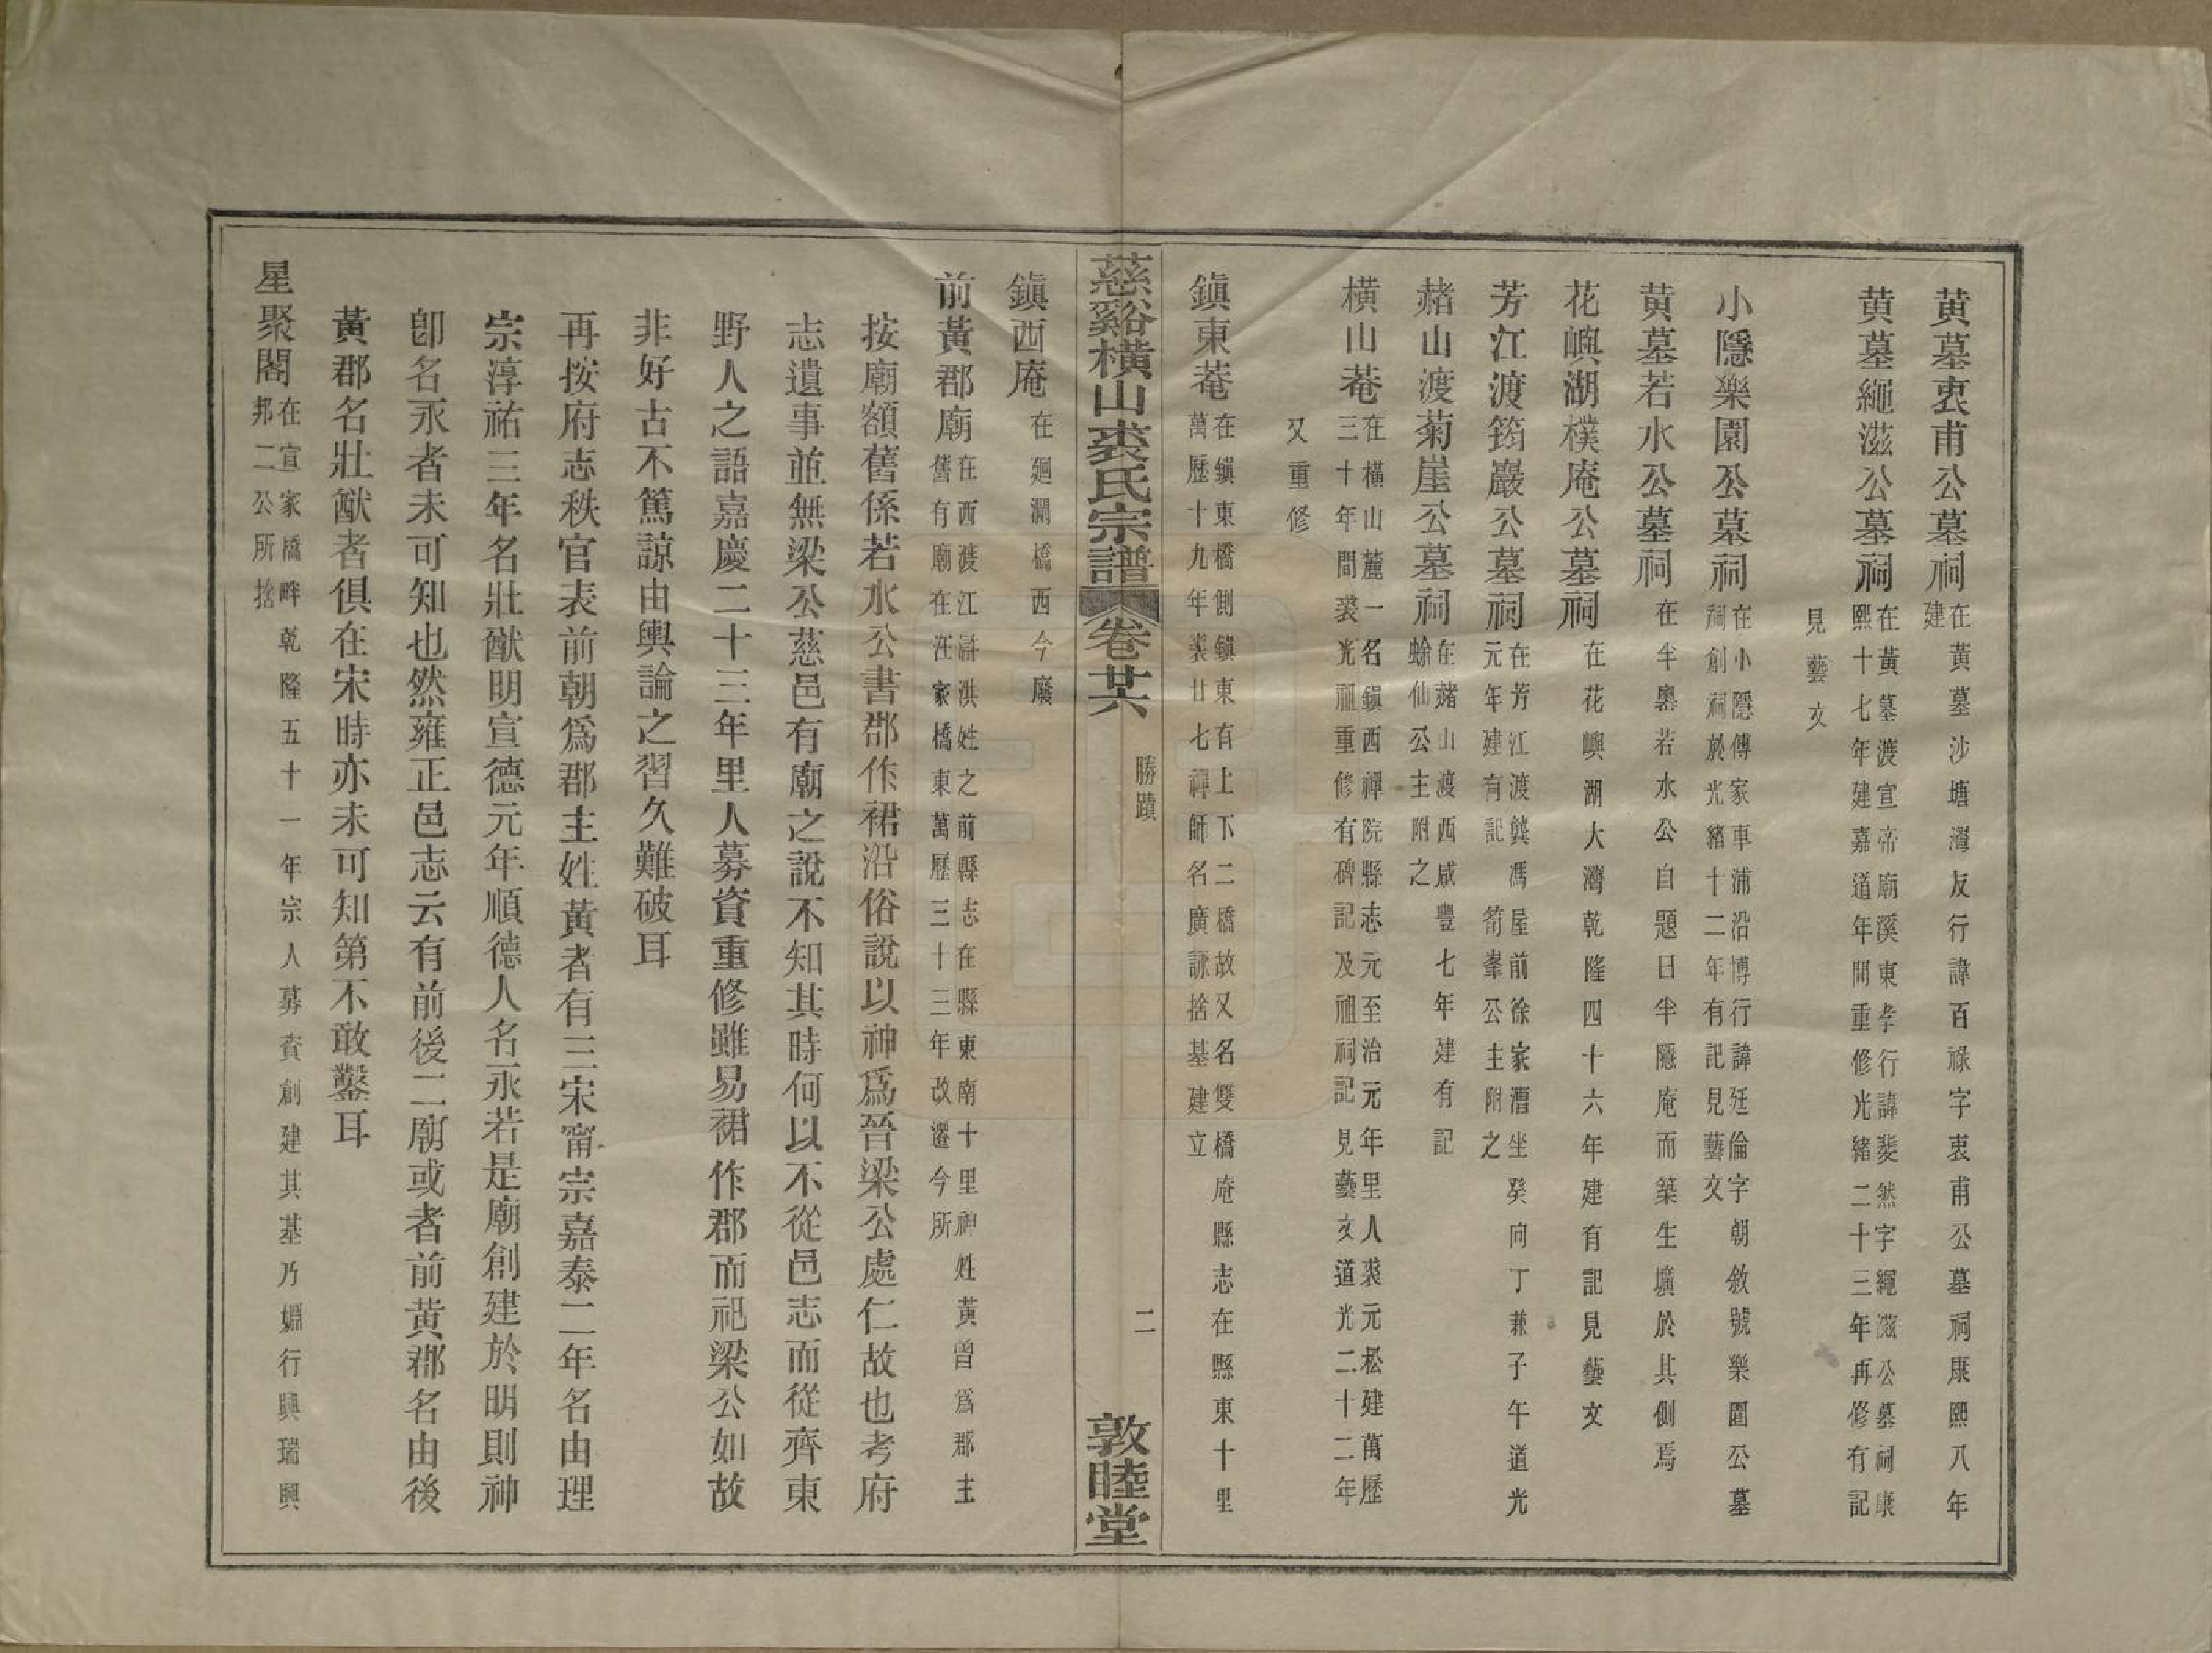 黄墓衷甫公墓祠在黄墓沙塘灣友行諱百祿字衷甫公墓祠康熙八年建
黄墓繩滋公墓祠在黃墓渡宣帝廟溪東孝行諱菱然字繩滋公墓祠康熙十七年建嘉道年間重修光緒二十三年再修有記
見藝文
小隱樂園公墓祠在小隱傅家車浦沿博行諱廷倫字朝敘號樂園公墓祠創祠於光緒十二年有記見藝文
黄墓若水公墓祠在半嶴若水公自題曰半隱庵而築生壙於其側焉
花嶼湖樸庵公墓祠在花嶼湖大灣乾隆四十六年建有記見藝文
芳江渡筠巖公墓祠在芳江渡龔馮屋前徐家漕坐癸向丁兼子午道光元年建有記 筍峯公主附之
赭山渡菊崖公墓祠在赭山渡西咸豐七年建有記蛤仙公主附之
橫山菴在橫山麓一名鎭西禪院縣志元至治元年里人裘元松建萬歷三十年間裘光祖重修有碑記及祖祠記見藝文道光二十二年
又重修
鎭東菴在鎭東橋側鎭東有上下二橋故又名雙橋庵縣志在縣東十里萬歷十九年裘廿七禪師名廣詠捨基建立
慈谿橫山裘氏宗譜 卷廿六 勝蹟 二 敦睦堂
鎭西庵在廻瀾橋西今廢
前黃郡廟在西渡江滸洪姓之前縣志在縣東南十里神姓黃曾爲郡主舊有廟在汪家橋東萬歷三十三年改遷今所
按廟額舊係若水公書郡作裙沿俗說以神爲晉梁公處仁故也考府
志遺事並無梁公慈邑有廟之說不知其時何以不從邑志而從齊東
野人之語嘉慶二十三年里人募資重修雖易裙作郡而祀梁公如故
非好古不篤諒由輿論之習久難破耳
再按府志秩官表前朝爲郡主姓黃者有三宋甯宗嘉泰二年名由理
宗淳祐三年名壯猷明宣德元年順德人名永若是廟創建於明則神
卽名永者未可知也然雍正邑志云有前後二廟或者前黃郡名由後
黃郡名壯猷者俱在宋時亦未可知第不敢鑿耳
星聚閣在宣家橋畔乾隆五十一年宗人募資創建其基乃嫺行興瑞興邦二公所捨